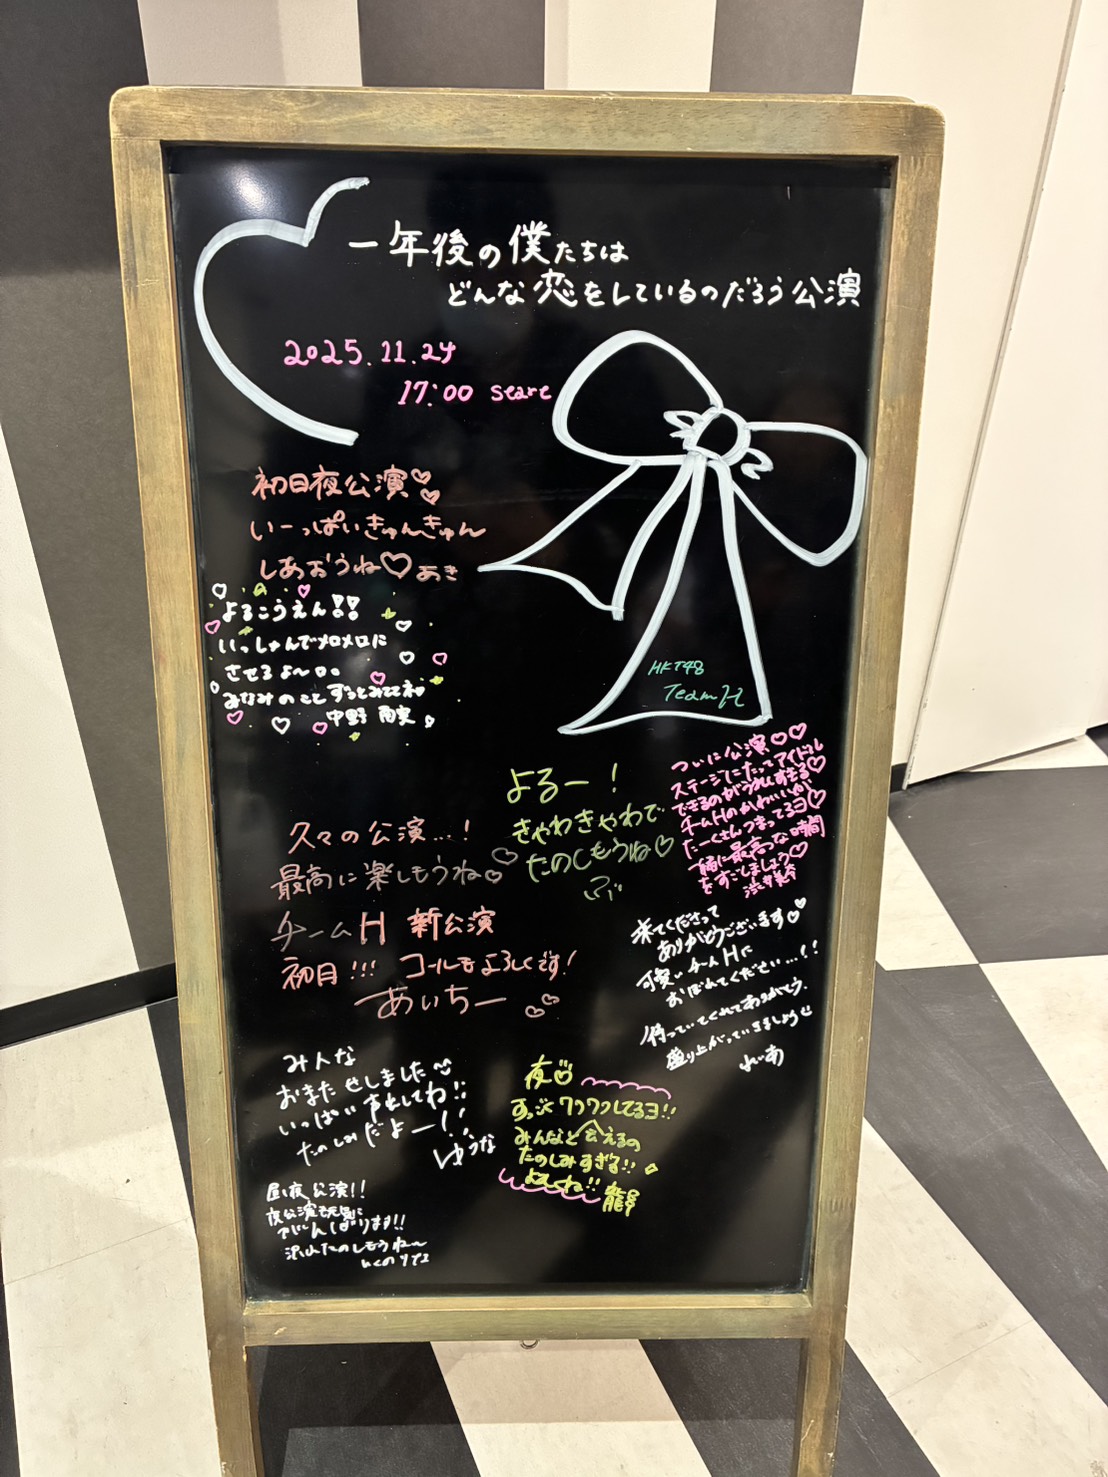 一年後の僕たちは
どんな恋をしているのだろう公演
2025.11.24
17:00 start
初日夜公演
いーっぱいきゅんきゅん
しあおうね♡あき
よるこうえん!!
いっしゅんでメロメロに
させるよ〜。。
みなみのことずっとみててネ
中野
HKT48
TeamH
よるー!
きゃわきゃわで
たのしもうね♡
ついに公演♡♡
ステージにたってアイドル
できるのがうれしすぎる♡
チームHのかわいいが
たーくさんつまってるヨ♡
一緒に最高な時間
をすごしましょう♡
渋井美奈
久々の公演...!
最高に楽しもうね♡
チームH 新公演
初日!!! コールもよろしくです!
めいちー
来てくださって
ありがとうございます♡
可愛いチームHに
おぼれてください...!!
待っていてくれてありがとう。
盛り上がっていきましょう
みんな
おまたせしました
いっぱい声出してね!!
たのしみだよー!!
ゆうな
夜
すっごくワクワクしてるヨ!!
みんなと会えるの
たのしみすぎる!!
よろしくね!!
龍
昼夜公演!!
夜公演も元気に
がんばります!!
沢山たのしもうね〜